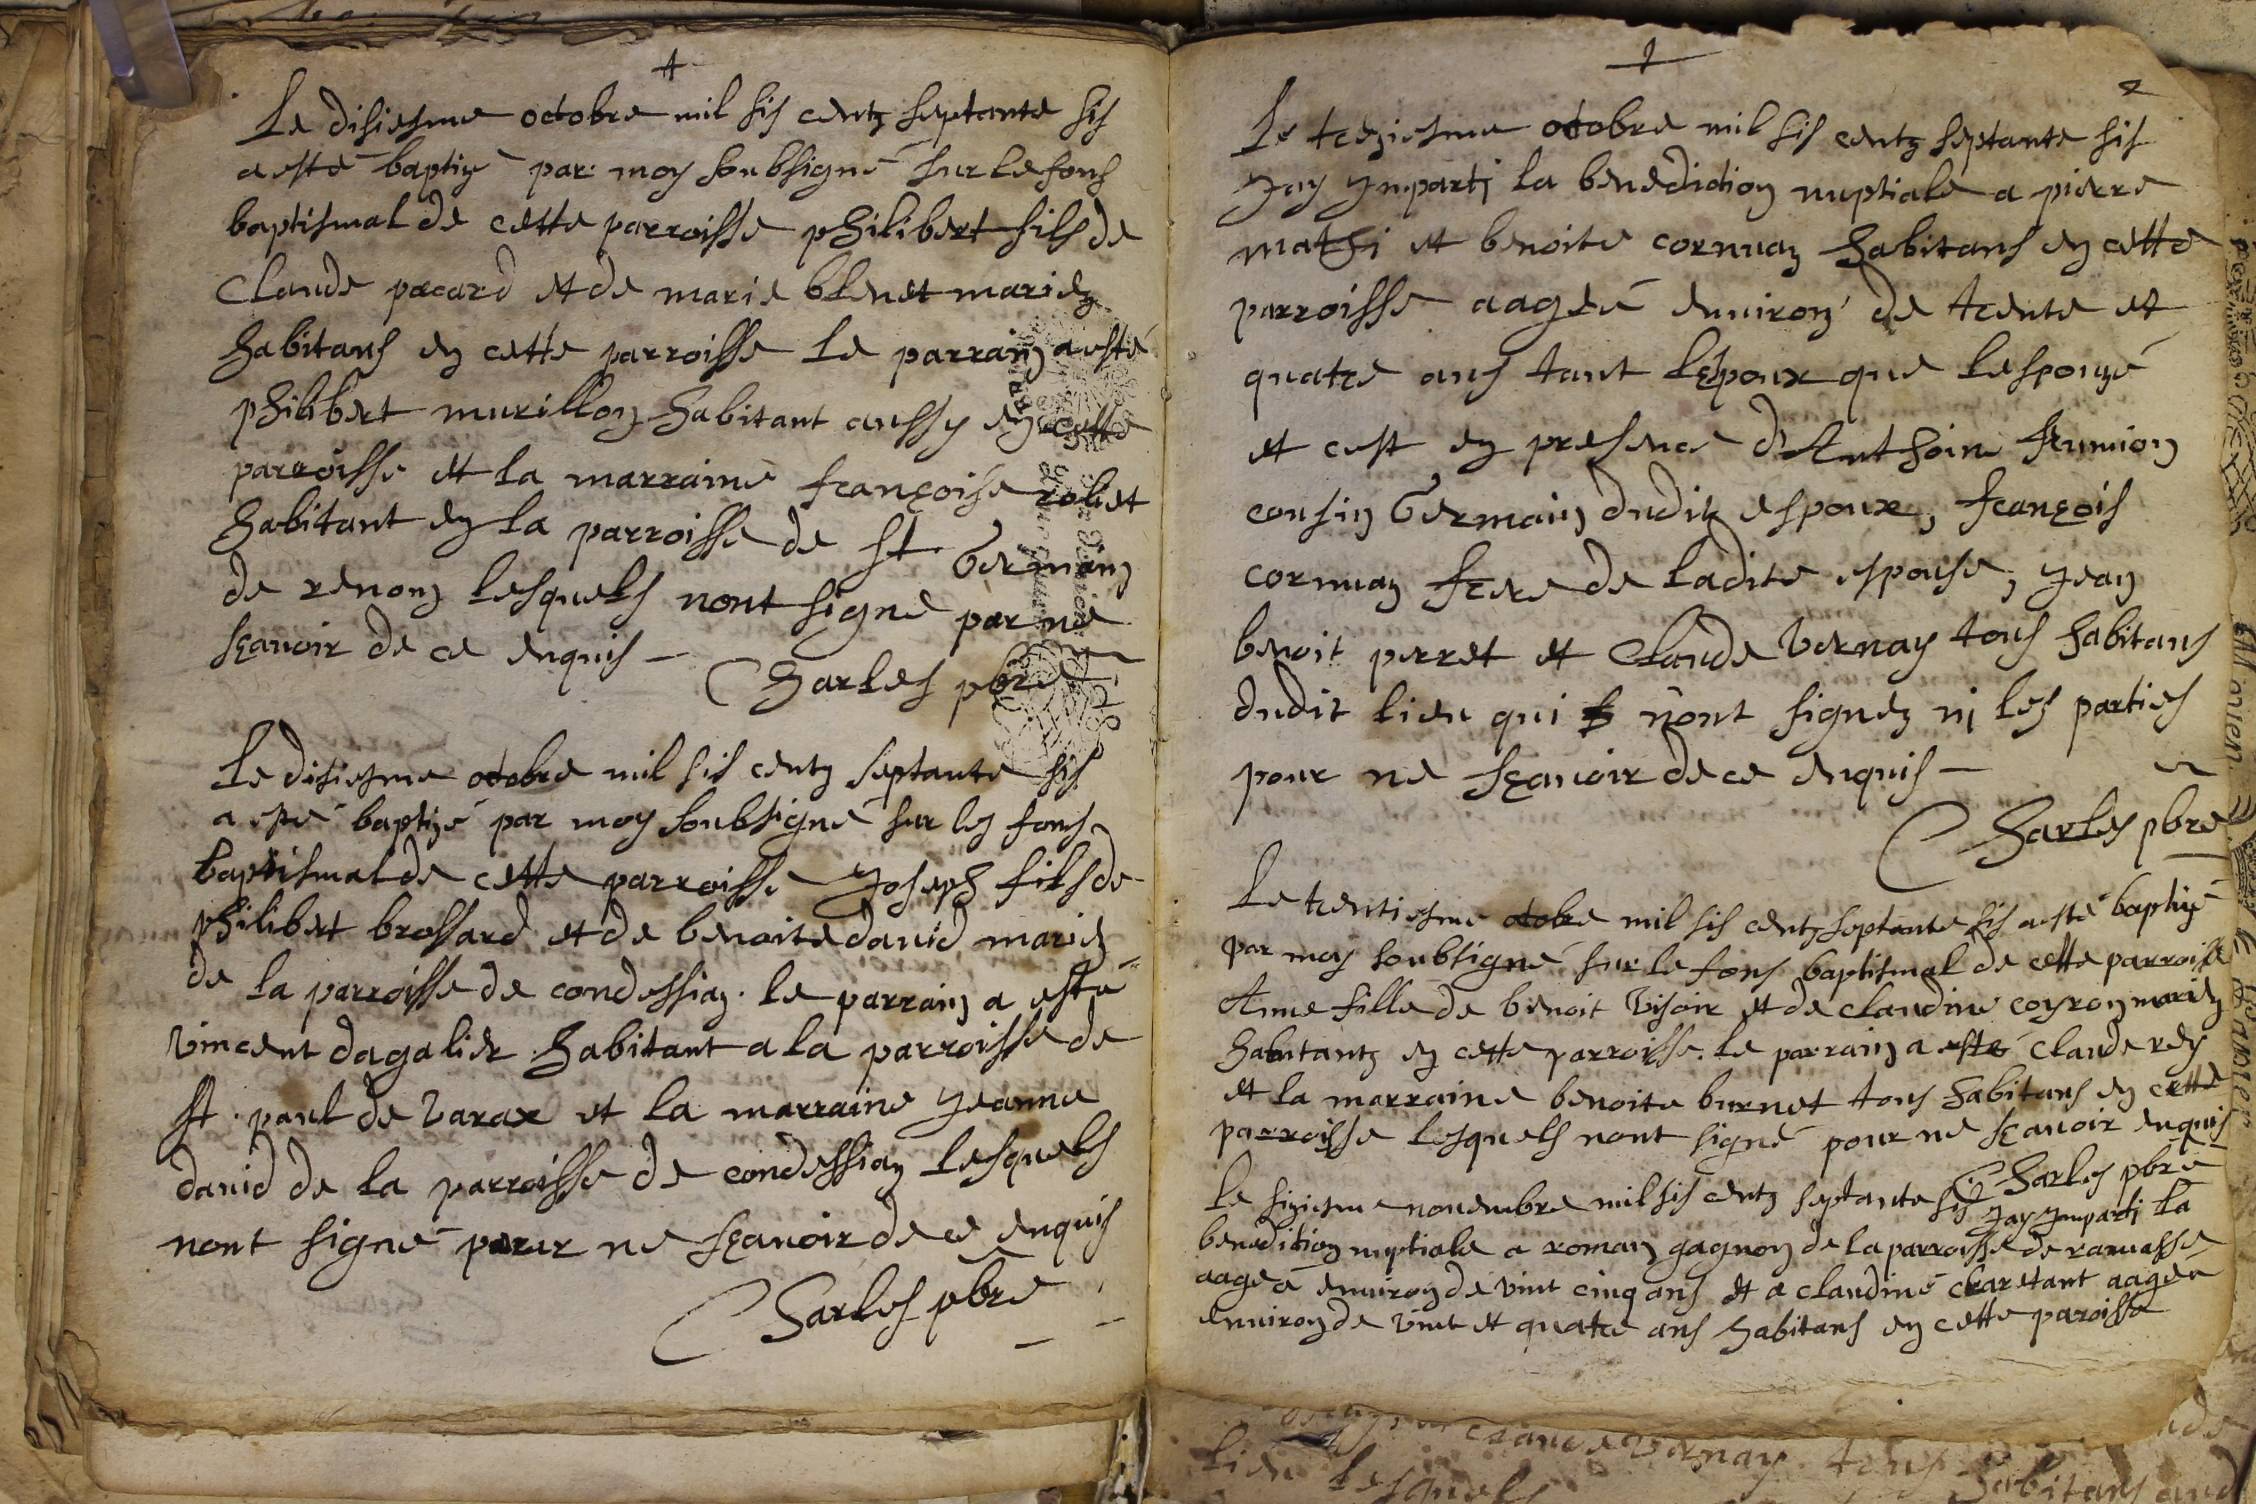 Le disiesme octobre mil sis centz septante sis
a esté baptizé par moy soubsigné sur le fons
baptismal de cette parroisse philibert fils de
Claude pacard et de marie blenet mariez
habitans en cette parroisse le parrain a esté
philibert murillon habitant aussy en cette
parroisse et la marraine françoise robet
habitant en la parroisse de st Germain
de renon lesquels nont signé par ne
sçavoir de ce enquis –
Charles pbre
Le disiesme octobre mil sis centz septante sis
a esté baptizé par moy soubsigné sur les fons
baptismal de cette parroisse Joseph fils de
philibert brossard et de benoite david mariez
de la parroisse de condessian. le parrain a esté
vincent dagalier habitant a la parroisse de
st. paul de varax et la marraine Jeanne
david de la parroisse de condessian lesquels
nont signé pour ne sçavoir de ce enquis
Charles pbre
2
Le treziesme octobre mil sis centz septante sis
Jay Imparti la benediction nuptiale a pierre
mathi et benoite cornuan habitans en cette
parroisse aageé environ de trente et
quatre ans tant lespoux que lespouzé
et cest en presence d'Anthoine
cousin Germain dudit espoux, françois
cornuan frere de ladite espouse, Jean
benoit perret et Claude Vernay tous habitans
dudit lieu qui nont signez ni les parties
pour ne sçavoir de ce enquis –
Charles pbre
Le trentiesme octobre mil sis centz septante sis a esté baptizé
par moy soubsigné sur le fons baptismal de cette parroisse
Anne fille de benoit Visoir et de claudine coyron mariez
habitantz en cette parroisse. le parrain a esté Claude rey
et la marraine benoite burnet tous habitans en cette
parroisse lesquels nont signé pour ne sçavoir enquis
Charles pbre
Le siziesme novembre mil sis centz septante sis Jay Imparti la
benediction nuptiale a roman gagnon de la parroisse de ramasse
aageé environ de vint cinq ans et a claudine charetant aageé
environ de vint et quatre ans habitans en cette paroisse
claude vernay tous
lien lesquels habitans aud